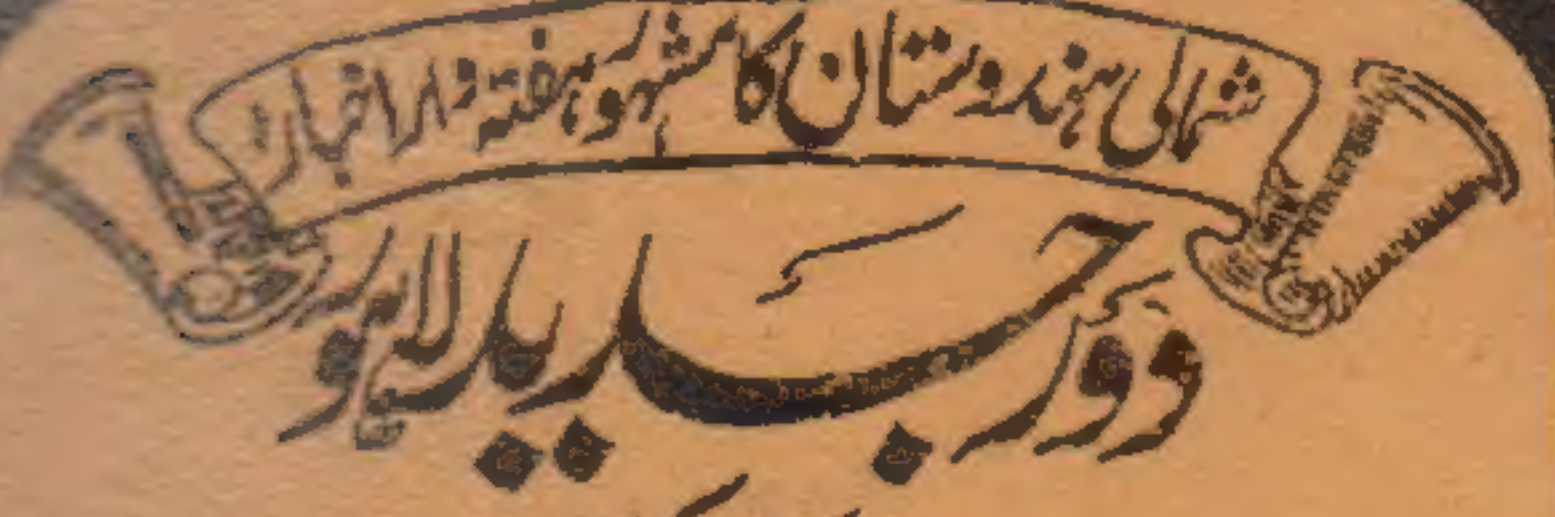 شمالی ہندوستان کا مشہور ہفتہ وار اخبار
دَورِ جدید لاہور